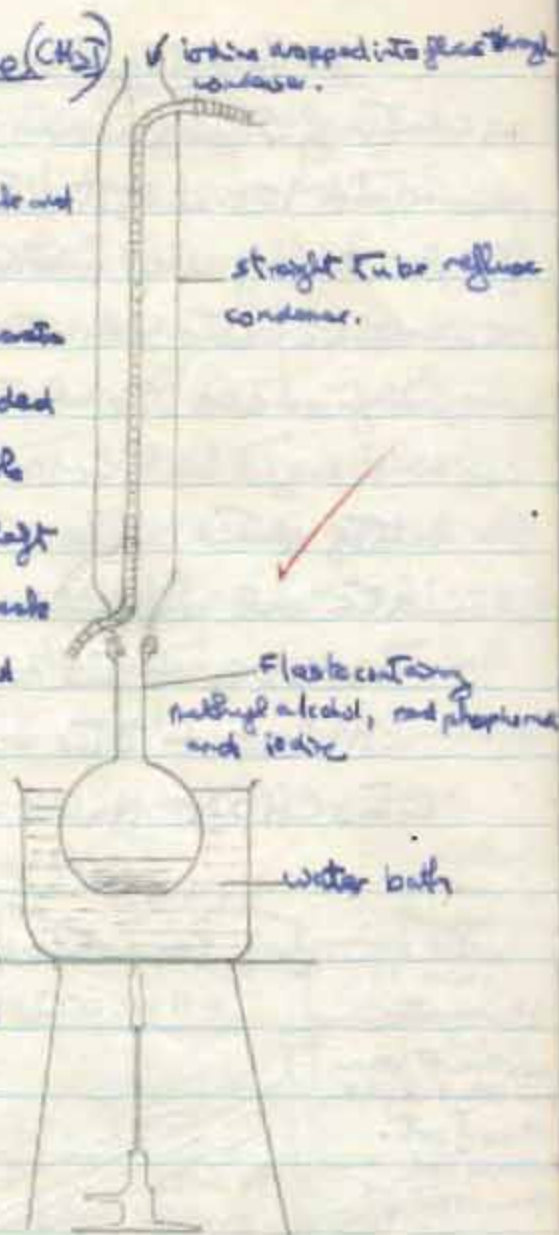 (CH₃I)
iodine dropped into flask through
condenser.
straight tube reflux
condenser.
ded
Flask containing
methyl alcohol, red phosphorus
and iodine
water bath